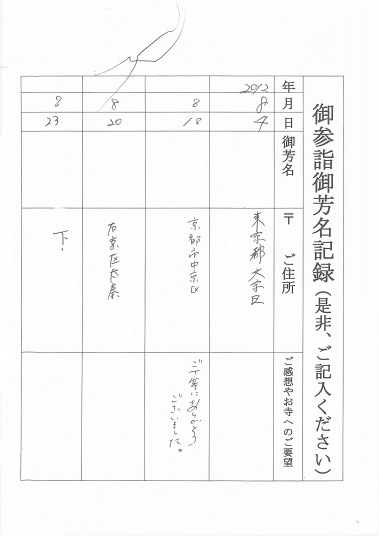 御参詣御芳名記録（是非、ご記入ください）
年
月
日
御芳名
〒 ご住所
ご感想やお寺へのご要望
2012
8
4
東京都大田区
8
18
京都市中京区
ご丁寧にありがとう
ございました。
8
20
右京区太秦
8
23
下。